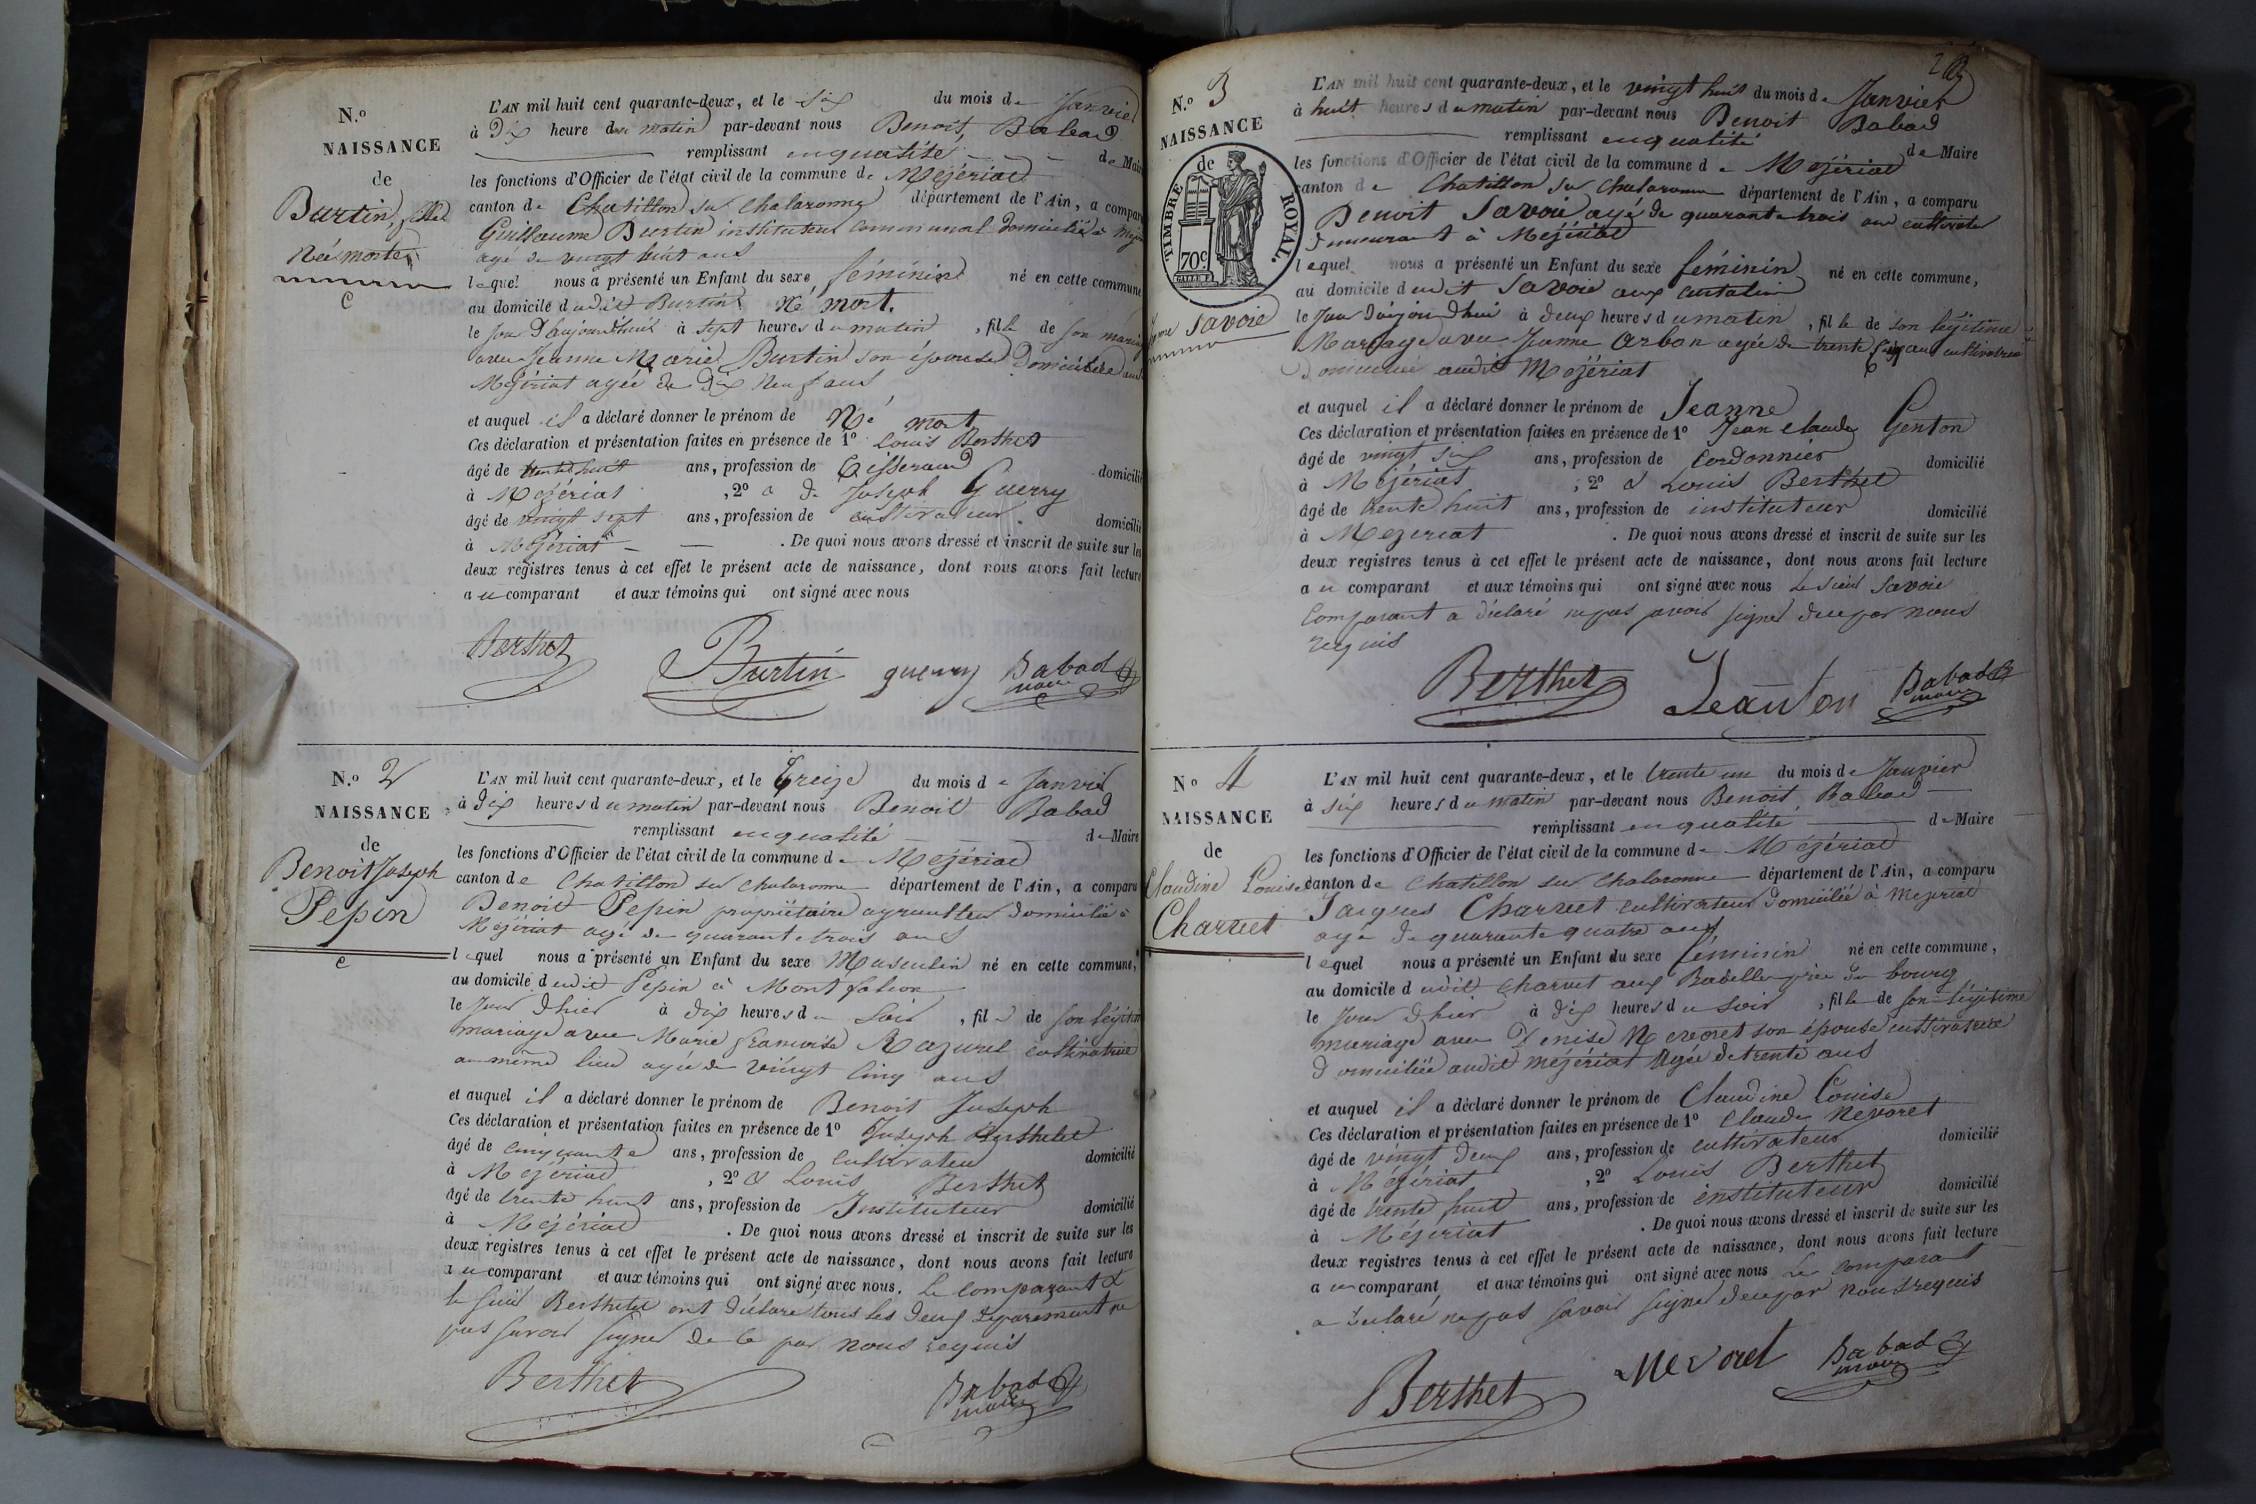 N.o
NAISSANCE
de
Burtin, fille
Née morte
L'AN mil huit cent quarante-deux, et le Six du mois de Janvier
à Dix heure du matin par-devant nous Benoit Babad
remplissant en qualité de Maire
les fonctions d'Officier de l'état civil de la commune de Mézériat
canton de Chatillon sur Chalaronne département de l'Ain, a comparu
Guillaume Burtin instituteur communal domicilié à
agé de vingt huit ans
lequel nous a présenté un Enfant du sexe féminin né en cette commune
au domicile dudit Burtin Né mort.
le jour d'aujourd'hui à sept heures du matin, fille de son mariage
avec Jeanne Marie Burtin son épouse domiciliée
Mézériat agée de dix neuf ans
et auquel il a déclaré donner le prénom de Né mort
Ces déclaration et présentation faites en présence de 1o Louis Berthet
âgé de trente huit ans, profession de Tisserand domicilié
à Mézériat, 2o & de Joseph Guerry
âgé de vingt sept ans, profession de cultivateur domicilié
à Mézériat — — . De quoi nous avons dressé et inscrit de suite sur les
deux registres tenus à cet effet le présent acte de naissance, dont nous avons fait lecture
au comparant et aux témoins qui ont signé avec nous
Berthet Burtin guerry Babad maire
N.o 2
NAISSANCE
de
Benoit Joseph
Pepin
L'AN mil huit cent quarante-deux, et le Treize du mois de Janvier
à Dix heures du matin par-devant nous Benoit Babad
remplissant en qualité de Maire
les fonctions d'Officier de l'état civil de la commune de Mézériat
canton de Chatillon sur Chalaronne département de l'Ain, a comparu
Benoit Pepin propriétaire agriculteur domicilié à
Mézériat agé de quarante trois ans
lequel nous a présenté un Enfant du sexe Masculin né en cette commune,
au domicile dudit Pepin à Montfalcon
le jour d'hier à dix heures du soir, fils de son légitime
mariage avec Marie françoise Mazurel cultivatrice
au même lieu agée de vingt cinq ans
et auquel il a déclaré donner le prénom de Benoit Joseph
Ces déclaration et présentation faites en présence de 1o Joseph Berthelet
âgé de cinquante ans, profession de cultivateur domicilié
à Mézériat, 2o & Louis Berthet
âgé de trente huit ans, profession de Instituteur domicilié
à Mézériat . De quoi nous avons dressé et inscrit de suite sur les
deux registres tenus à cet effet le présent acte de naissance, dont nous avons fait lecture
au comparant et aux témoins qui ont signé avec nous. Le comparant &
le sieur Berthelet ont déclaré tous les deux séparément ne
pas savoir signer de ce par nous requis
Berthet Babad maire
2
N.o 3
NAISSANCE
de
TIMBRE ROYAL.
70c
Savoie
L'AN mil huit cent quarante-deux, et le vingt huit du mois de Janvier
à huit heures du matin par-devant nous Benoit Babad
remplissant en qualité de Maire
les fonctions d'Officier de l'état civil de la commune de Mézériat
canton de Chatillon sur Chalaronne département de l'Ain, a comparu
Benoit Savoie agé de quarante trois ans cultivateur
demeurant à Mézériat
lequel nous a présenté un Enfant du sexe féminin né en cette commune,
au domicile dudit Savoie aux
le jour d'aujourd'hui à deux heures du matin, fille de son légitime
Mariage avec Jeanne Arbon agée de trente six ans cultivatrice
domiciliée audit Mézériat
et auquel il a déclaré donner le prénom de Jeanne
Ces déclaration et présentation faites en présence de 1o Jean claude Genton
âgé de vingt six ans, profession de Cordonnier domicilié
à Mézériat, 2o & Louis Berthet
âgé de trente huit ans, profession de instituteur domicilié
à Mezeriat . De quoi nous avons dressé et inscrit de suite sur les
deux registres tenus à cet effet le présent acte de naissance, dont nous avons fait lecture
au comparant et aux témoins qui ont signé avec nous Le sieur Savoie
comparant a déclaré ne pas savoir signer de ce par nous
requis
Berthet Babad maire
No 4
NAISSANCE
de
Claudine Louise
Charvet
L'AN mil huit cent quarante-deux, et le trente un du mois de Janvier
à six heures du matin par-devant nous Benoit Babad
remplissant en qualité de Maire
les fonctions d'Officier de l'état civil de la commune de Mézériat
canton de Chatillon sur Chalaronne département de l'Ain, a comparu
Jacques Charvet cultivateur domicilié à Mezeriat
agé de quarante quatre ans
lequel nous a présenté un Enfant du sexe féminin né en cette commune,
au domicile dudit Charvet aux du bourg
le jour d'hier à dix heures du soir, fille de son légitime
mariage avec Denise Nevoret son épouse cultivatrice
domiciliée audit mézériat Agée de trente ans
et auquel il a déclaré donner le prénom de Claudine Louise
Ces déclaration et présentation faites en présence de 1o Claude Nevoret
âgé de vingt deux ans, profession de cultivateur domicilié
à Mézériat, 2o Louis Berthet
âgé de trente huit ans, profession de instituteur domicilié
à Mézériat . De quoi nous avons dressé et inscrit de suite sur les
deux registres tenus à cet effet le présent acte de naissance, dont nous avons fait lecture
au comparant et aux témoins qui ont signé avec nous Le comparant
a déclaré ne pas savoir signer de ce par nous requis
Berthet Nevoret Babad maire